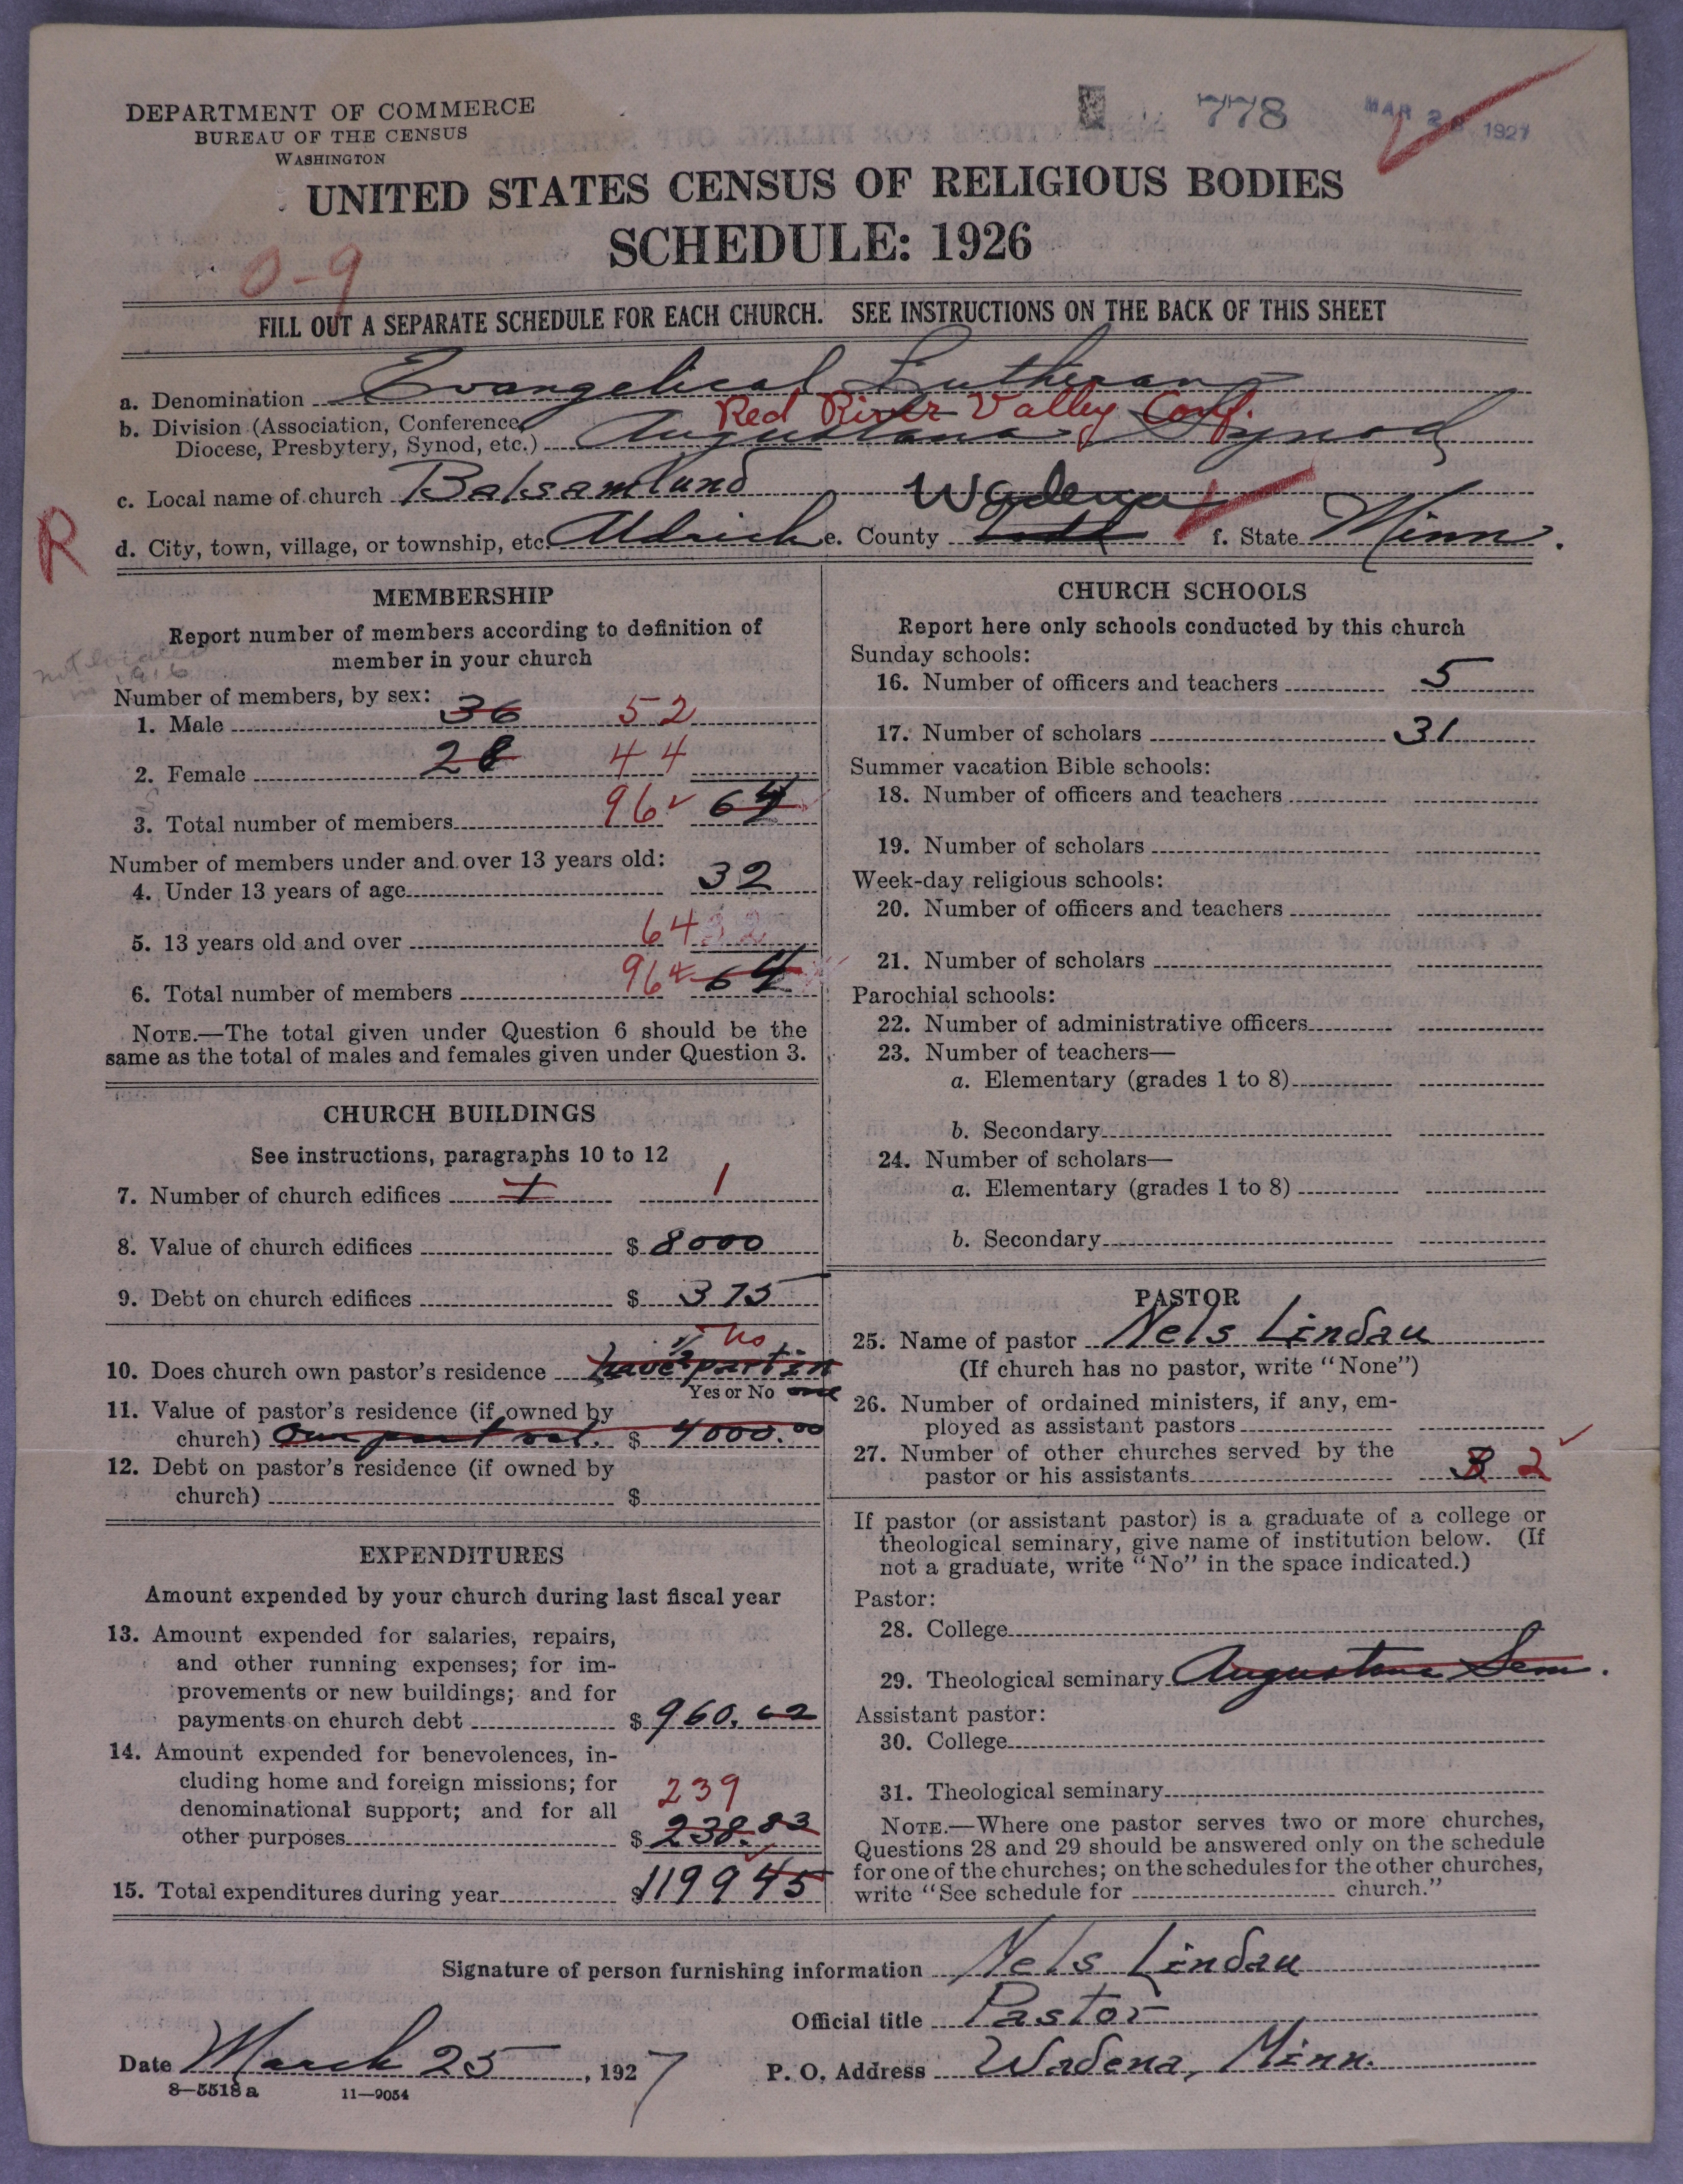 DEPARTMENT OF COMMERCE
BUREAU OF THE CENSUS
WASHINGTON
778
MAR 26 1927
UNITED STATES CENSUS OF RELIGIOUS BODIES
SCHEDULE: 1926
0-9
FILL OUT A SEPARATE SCHEDULE FOR EACH CHURCH. SEE INSTRUCTIONS ON THE BACK OF THIS SHEET
a. Denomination Evangelical Lutheran
Red River Valley Conf.
b. Division (Association, Conference, Diocese, Presbytery, Synod, etc.) Augustana Synod
c. Local name of church Balsamlund
Wadena
R
d. City, town, village, or township, etc. Aldrich e. County Todd f. State Minn.
MEMBERSHIP
Report number of members according to definition of
member in your church
not located
in 1916
Number of members, by sex:
1. Male 36 52
2. Female 28 44
3. Total number of members 96 64
Number of members under and over 13 years old:
4. Under 13 years of age 32
5. 13 years old and over 64 32
6. Total number of members 96 64
NOTE.—The total given under Question 6 should be the
same as the total of males and females given under Question 3.
CHURCH BUILDINGS
See instructions, paragraphs 10 to 12
7. Number of church edifices 1 1
8. Value of church edifices $ 8000
9. Debt on church edifices $ 375
no
10. Does church own pastor's residence have 1/2 part in
Yes or No one
11. Value of pastor's residence (if owned by
church) Our part val. $ 4000.00
12. Debt on pastor's residence (if owned by
church) $
EXPENDITURES
Amount expended by your church during last fiscal year
13. Amount expended for salaries, repairs,
and other running expenses; for im-
provements or new buildings; and for
payments on church debt $ 960.62
14. Amount expended for benevolences, in-
cluding home and foreign missions; for
239
denominational support; and for all
other purposes $ 238.83
15. Total expenditures during year $1199 45
CHURCH SCHOOLS
Report here only schools conducted by this church
Sunday schools:
16. Number of officers and teachers 5
17. Number of scholars 31
Summer vacation Bible schools:
18. Number of officers and teachers
19. Number of scholars
Week-day religious schools:
20. Number of officers and teachers
21. Number of scholars
Parochial schools:
22. Number of administrative officers
23. Number of teachers—
a. Elementary (grades 1 to 8)
b. Secondary
24. Number of scholars—
a. Elementary (grades 1 to 8)
b. Secondary
PASTOR
25. Name of pastor Nels Lindau
(If church has no pastor, write "None")
26. Number of ordained ministers, if any, em-
ployed as assistant pastors
27. Number of other churches served by the
pastor or his assistants 3 2
If pastor (or assistant pastor) is a graduate of a college or
theological seminary, give name of institution below. (If
not a graduate, write "No" in the space indicated.)
Pastor:
28. College
29. Theological seminary Augustana Sem.
Assistant pastor:
30. College
31. Theological seminary
NOTE.—Where one pastor serves two or more churches,
Questions 28 and 29 should be answered only on the schedule
for one of the churches; on the schedules for the other churches,
write "See schedule for church."
Signature of person furnishing information Nels Lindau
Official title Pastor
Date March 25, 1927 P. O. Address Wadena, Minn.
8—5518 a 11—9054